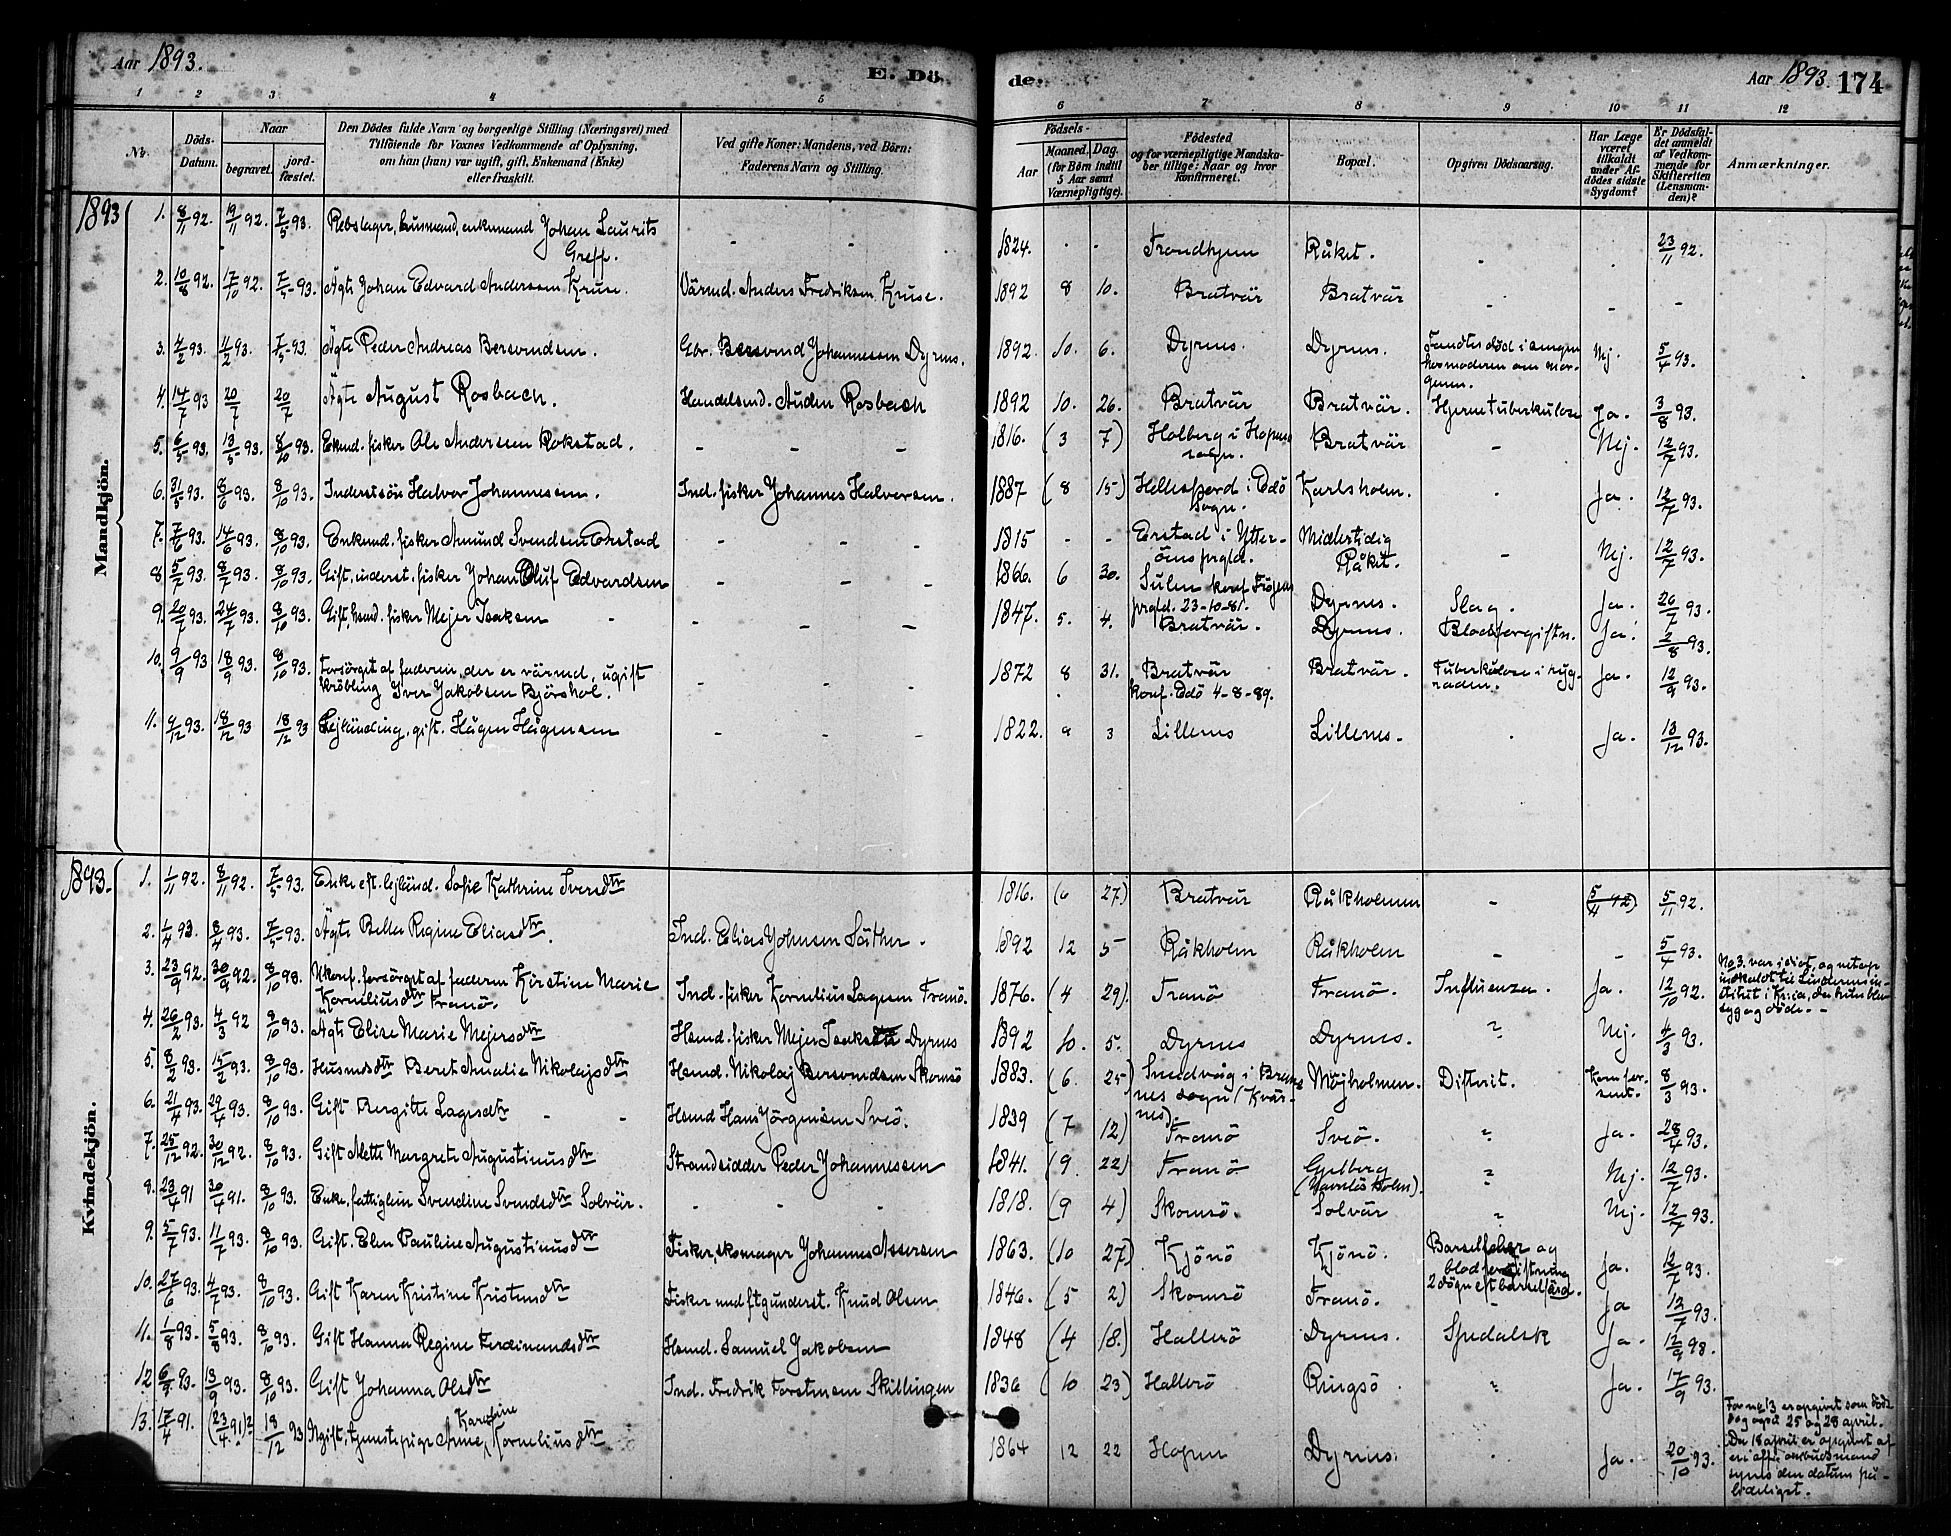 Aar 1893.
E. Dö
de.
Aar 1893. 174
1 2 3 4 5 6 7 8 9 10 11 12
No.
Döds-Datum.
Naar
begravet.
jord-fæstet.
Den Dödes fulde Navn og borgerlige Stilling (Næringsvei) med
Tilföiende for Voxnes Vedkommende af Oplysning,
om han (hun) var ugift, gift, Enkemand (Enke)
eller fraskilt.
Ved gifte Koner: Mandens, ved Börn:
Faderens Navn og Stilling.
Födsels-
Aar
Maaned. Dag.
(for Börn indtil
5 Aar samt
Værnepligtige).
Födested
og for værnepligtige Mandska-
ber tillige: Naar og hvor
konfirmeret.
Bopæl.
Opgiven Dödsaarsag.
Har Læge
været
tilkaldt
under Af-
dödes sidste
Sygdom?
Er Dödsfal-
det anmeldt
af Vedkom-
mende for
Skifteretten
(Lensman-
den)?
Anmærkninger.
1893
Mandkjön.
1. 8/11 92. 19/11 92. 7/5 93. Rebslager, husmand, enkemand Johan Laurits Greff. - - 1824. - - Trondhjem Råket. - . 23/11 92.
2. 10/8 92. 17/10 92. 7/5 93. Ägte Johan Edvard Andersen Kruse. Värmd. Anders Fredriksen Kruse. 1892 8 10. Bratvär Bratvär - - -
3. 4/2 93. 11/2 93. 7/5 93. Ägte Peder Andreas Bersvendsen. Gbr. Bersvend Johannessen Dyrnes. 1892. 10. 6. Dyrnes. Dyrnes. Fandtes död i sengen hos moderen om mor-genen. Nej. 5/4 93.
4. 14/7 93 20/7 20/7 Ägte August Rosbach. Handelsmd. Auden Rosbach 1892 10. 26. Bratvär Bratvär. Hjernetuberkulose Ja. 3/8 93.
5. 6/5 93. 13/5 93. 8/10 93. Ekmd. fisker Ole Andersen Rokstad. - - - 1816. (3 7) Holberg i Hopens sogn. Bratvär - Nej. 12/7 93.
6. 31/5 93. 8/6 93. 8/10 93. Inderstsön Halvor Johannesen. Ind. fisker Johannes Halvorsen. 1887 (8 15) Hellesfjord i Edö Sogn. Karlsholm. . Ja. 12/7 93.
7. 7/6 93. 14/6 93. 8/10 93. Enkemd. fisker Amund Svendsen Erstad - - - 1815 - - Erstad i Ytter-öens prgld. Midlertidig Råket. - Nej. 12/7 93.
8. 5/7 93. 8/7 93. 8/10 93. Gift, inderst. fisker Johan Oluf Edvardsen - - - 1866. 6 30. Sulen konf. Fröjens prgld. 23-10-81. Dyrnes. Slag. Ja. 26/7 93.
9. 20/7 93. 24/7 93. 8/10 93. Gift, hsmd. fisker Mejer Isaksen - - - 1847. 5. 4. Bratvär. Dyrnes. Blodforgiftn. Ja. 2/8 93.
10. 9/9 93 18/9 93. 8/10 93. Forsörget af faderen, der er värmd, ugift kröbling Iver Jakobsen Björshol. - - - 1872 8 31. Bratvär konf. Edö 4-8-89. Bratvär. Tuberkulose i ryg-raden. Ja. 12/9 93.
11. 9/12 93. 18/12 93 18/12 93 Lejländing, gift. Hågen Hågensen - - - 1822. 9 3 Lillenes Lillenes. . Ja. 13/12 93.
1893.
Kvindekjön.
1. 1/11 92. 8/11 92. 7/5 93. Enke eft. lejländ. Sofie Kathrine Iversdtr 1816. (6 27.) Bratvär Råkholmen - 5/11 92.
2. 1/4 93. 8/4 93. 7/5 93. Ägte Bella Regine Eliasdtr. Ind. Elias Johnsen Säther. 1892 12 5 Råkholm Råkholm - - 5/4 93.
3. 23/9 92. 30/9 92. 8/10 93. Ukonf. forsörget af faderen Kirstine Marie Korneliusdtr Tranö. Ind. fisker Kornelius Lagesen Tranö. 1876. (4 29). Tranö Tranö. Influenza. Ja. 12/10 92. No 3. var idiot, og netop indkaldt til Lindemsin-stitut i Kr.ia, da hun blev syg og döde. -
4. 26/2 93. 4/3 92 8/10 93. Ägte Elise Marie Mejersdtr Hsmd. fisker Mejer Isaksen Dyrnes 1892 10. 5. Dyrnes Dyrnes. " Nej. 4/3 93.
5. 8/2 93. 15/2 93. 8/10 93. Husmdsdtr Beret Amalie Nikolajsdtr Hsmd. Nikolaj Bersvendsen Skomsö 1883. (6. 25) Sundvåg i Brems-nes sogn (Kvär-nes). Möjholmen. Difterit. Kom for sent. 8/3 93.
6. 21/4 93. 29/4 93. 8/10 93. Gift Bergitte Lagesdtr - - Hsmd Hans Jörgensen Sveö. 1839 (7 12) Tranö Sveö. " Ja. 28/4 93.
7. 25/12 92. 30/12 92. 8/10 93. Gift Mette Margrete Augustinusdtr Strandsidder Peder Johannessen 1841. (9. 22) Tranö Gjelberg " Nej. 12/7 93.
8. 23/4 91 30/4 91. 8/10 93. Enke, fattiglem Svendine Svendsdtr Solvär. - - - 1818. (9 4) Skomsö. Solvär " Nej. 12/7 93.
9. 5/7 93. 11/7 93. 8/10 93. Gift. Elen Pauline Augustinusdtr Fisker, skomager Johannes Assersen 1863. (10 27) Kjönö Kjönö. Barselfeber og blodforgiftning 2 dögn eft. barselfärd. Ja. 12/7 93.
10. 27/6 93. 4/7 93. 8/10 93. Gift Karen Kristine Kristendtr Fisker med ftgunderst. Knud Olsen 1846. (5 2) Skomsö Tranö. - Ja 12/7 93.
11. 1/8 93. 5/8 93. 8/10 93. Gift Hanna Regine Ferdinandsdtr Hsmd. Samuel Jakobsen 1848 (4 18.) Hallerö Dyrnes. Spedalsk Ja. 12/9 93.
12 6/9 93. 13/9 93. 8/10 93. Gift Johanna Olsdtr Ind. Fredrik Forstensen Skillingen 1836 (10 23) Hallerö Ringsö " Ja. 17/9 93.
13. 17/4 91. (23/4 91)? 18/12 93 Ugift, tjenestepige Anne Karoline Korneliusdtr 1864 12 22 Hopen Dyrnes. . Ja. 20/10 93. For no 13 er opgivet som döds dag også 25 og 28 april. Den 18 april er opgivet af